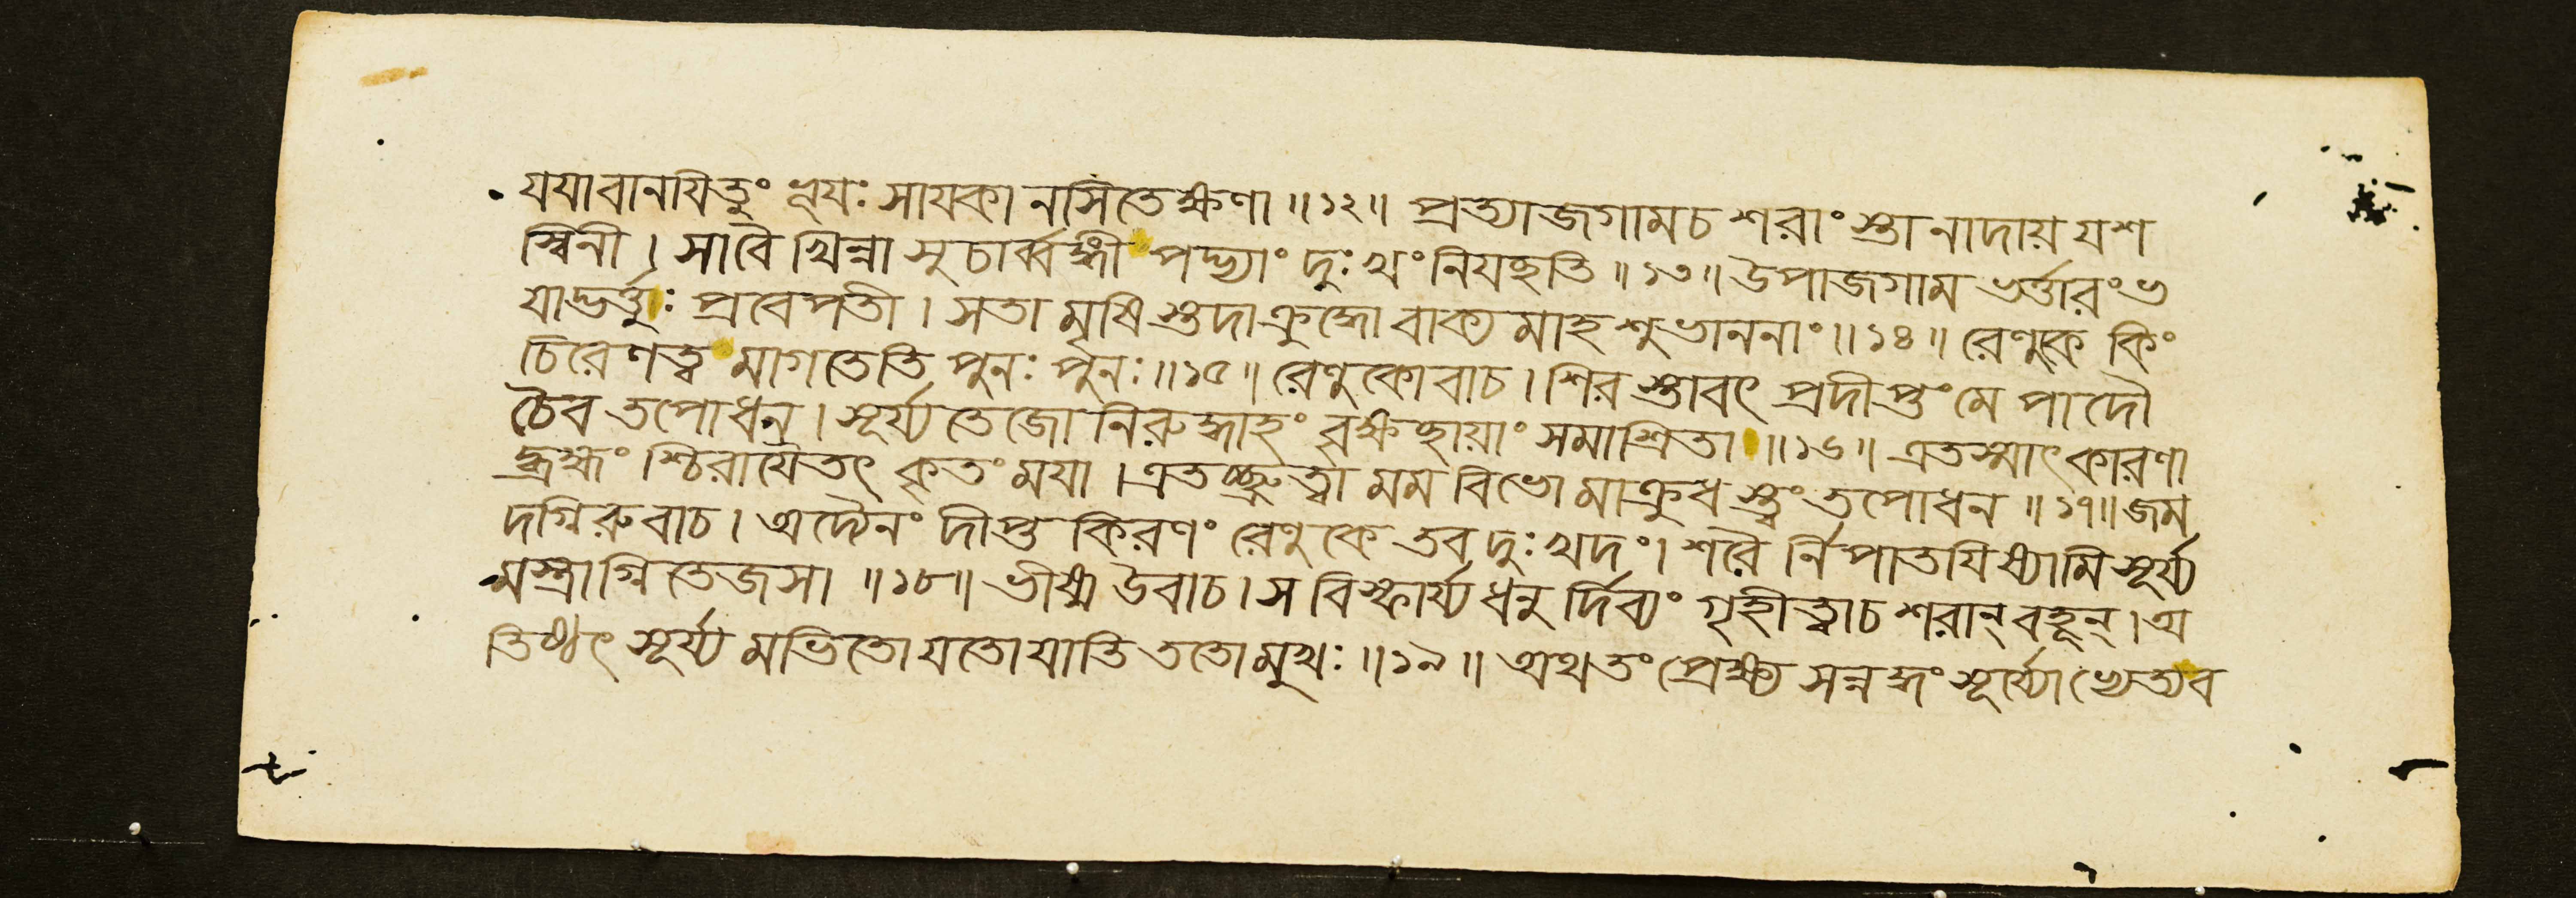 যযাবানাযিতুং ভূযঃ সাযকা নসিতেক্ষণা ॥১২॥ প্রত্যাজগামচ শরাং স্তা নাদায় যশ
স্বিনী । সাবৈ খিন্না সুচার্ব্বঙ্গী পদ্ভ্যাং দুঃখং নিযচ্ছতি ॥১৩॥ উপাজগাম ভর্ত্তারং ভ
যাদ্ভর্ত্তুঃ প্রবেপতী । সতা মৃষি স্তুদা ক্রুদ্ধো বাক্য মাহ শুভাননাং ॥১৪॥ রেণুকে কিং
চিরেণত্ব মাগতেতি পুনঃ পুনঃ ॥১৫॥ রেণুকোবাচ । শির স্তাবৎ প্রদীপ্তং মে পাদৌ
চৈব তপোধন । সূর্য্য তেজো নিরুদ্ধাহং বৃক্ষচ্ছাযাং সমাশ্রিতা ॥১৬॥ এতস্মাৎ কারণা
দ্ব্রহ্মং শ্চিরাযৈতৎ কৃতং মযা । এতচ্ছ্রুত্বা মম বিভো মাক্রুধ স্ত্বং তপোধন ॥১৭॥ জম
দগ্নিরুবাচ । অদ্যৈনং দীপ্ত কিরণং রেণুকে তব দুঃখদং । শরৈ র্নিপাতযিষ্যামি সূর্য্য
মস্ত্রাগ্নি তেজসা ॥১৮॥ ভীষ্ম উবাচ । স বিস্ফার্য্য ধনু র্দিব্যং গৃহীত্বাচ শরান্ বহূন্ । অ
তিষ্ঠৎ সূর্য্য মভিতো যতো যাতি ততো মুখঃ ॥১৯॥ অথ তং প্রেক্ষ্য সন্নদ্ধং সূর্য্যো খ্যেত্যব